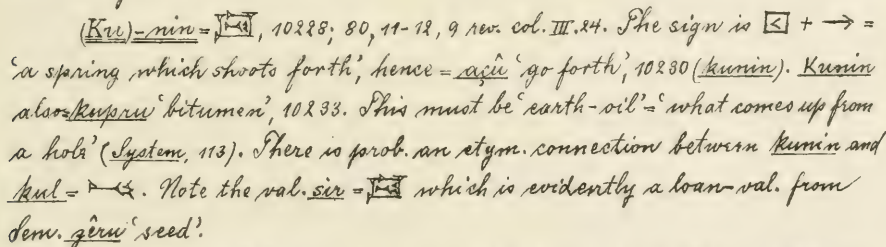 (Ku)-nin = , 10228; 80, 11-12, 9 rev. col. III. 24. The sign is + → =
'a spring which shoots forth', hence = açû 'go forth', 10230 (kunin). Kunin
also = kupru 'bitumen', 10233. This must be 'earth-oil' = 'what comes up from
a hole' (System, 113). There is prob. an etym. connection between kunin and
kul = . Note the val. sir = which is evidently a loan-val. from
Sem. zêru 'seed'.